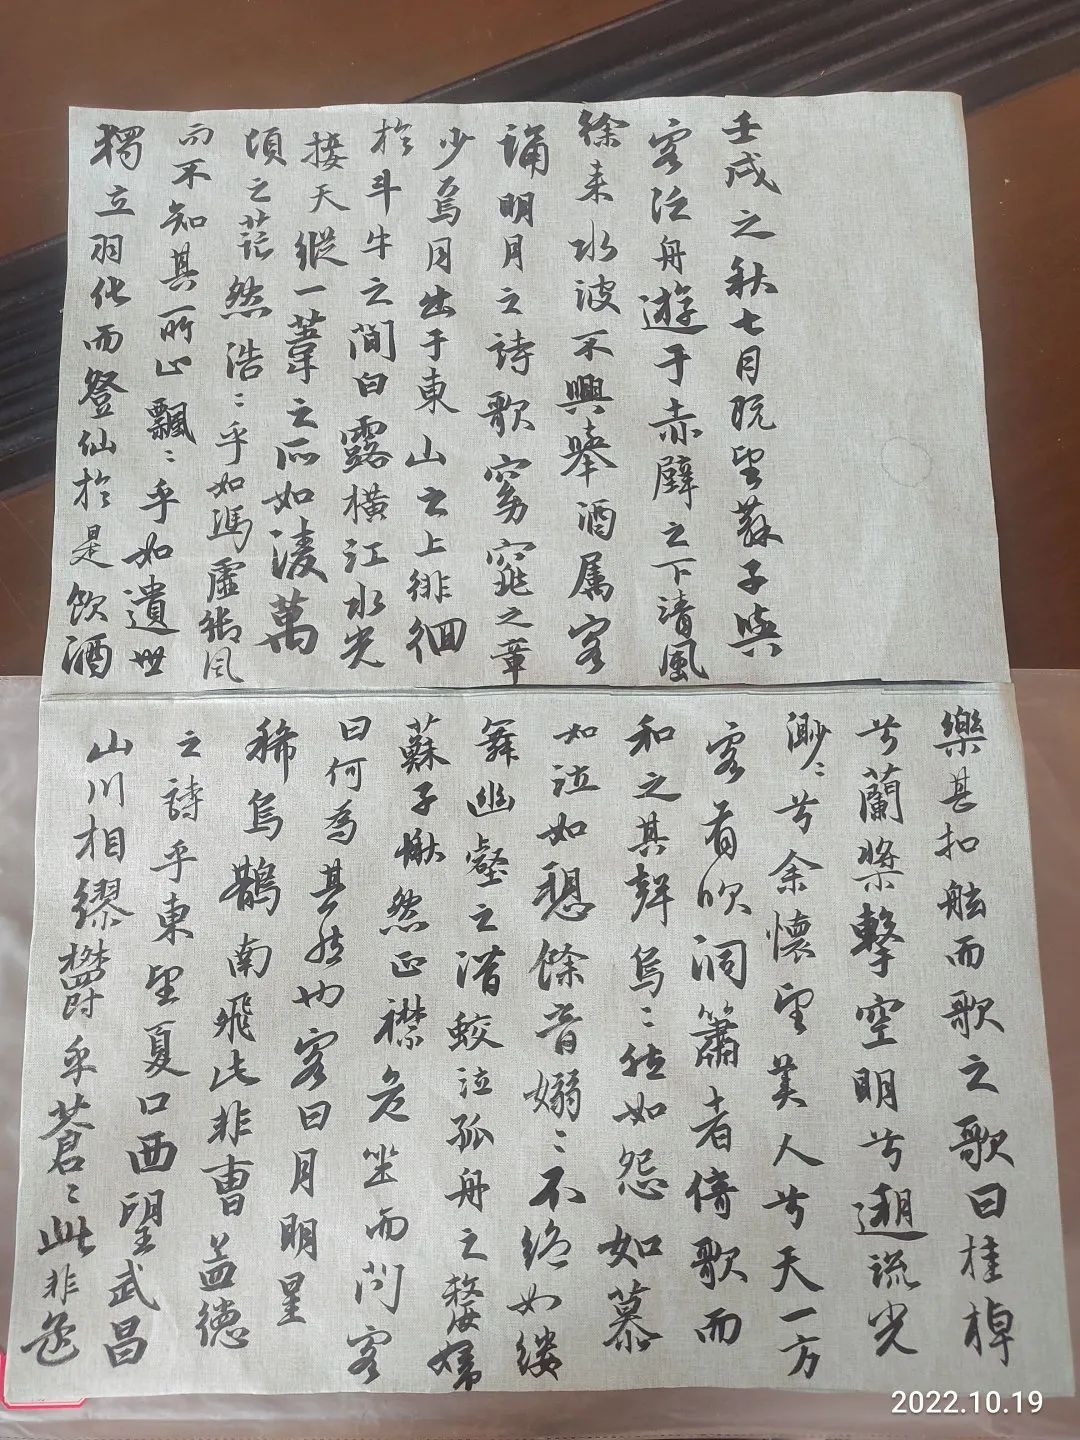 壬戌之秋七月既望蘇子與
客泛舟遊于赤壁之下清風
徐来水波不興舉酒属客
誦明月之詩歌窈窕之章
少焉月出于東山之上徘徊
於斗牛之間白露橫江水光
接天縱一葦之所如凌萬
頃之茫然浩〻乎如馮虛御风
而不知其所止飄〻乎如遺世
獨立羽化而登仙於是飲酒
樂甚扣舷而歌之歌曰桂棹
兮蘭槳擊空明兮遡流光
渺〻兮余懷望美人兮天一方
客有吹洞簫者倚歌而
和之其聲烏〻然如怨如慕
如泣如愬餘音嫋〻不绝如缕
舞幽壑之潜蛟泣孤舟之嫠婦
蘇子愀然正襟危坐而问客
曰何為其然也客曰月明星
稀烏鵲南飛此非曹孟德
之詩乎東望夏口西望武昌
山川相缪欝乎蒼〻此非孟
2022.10.19